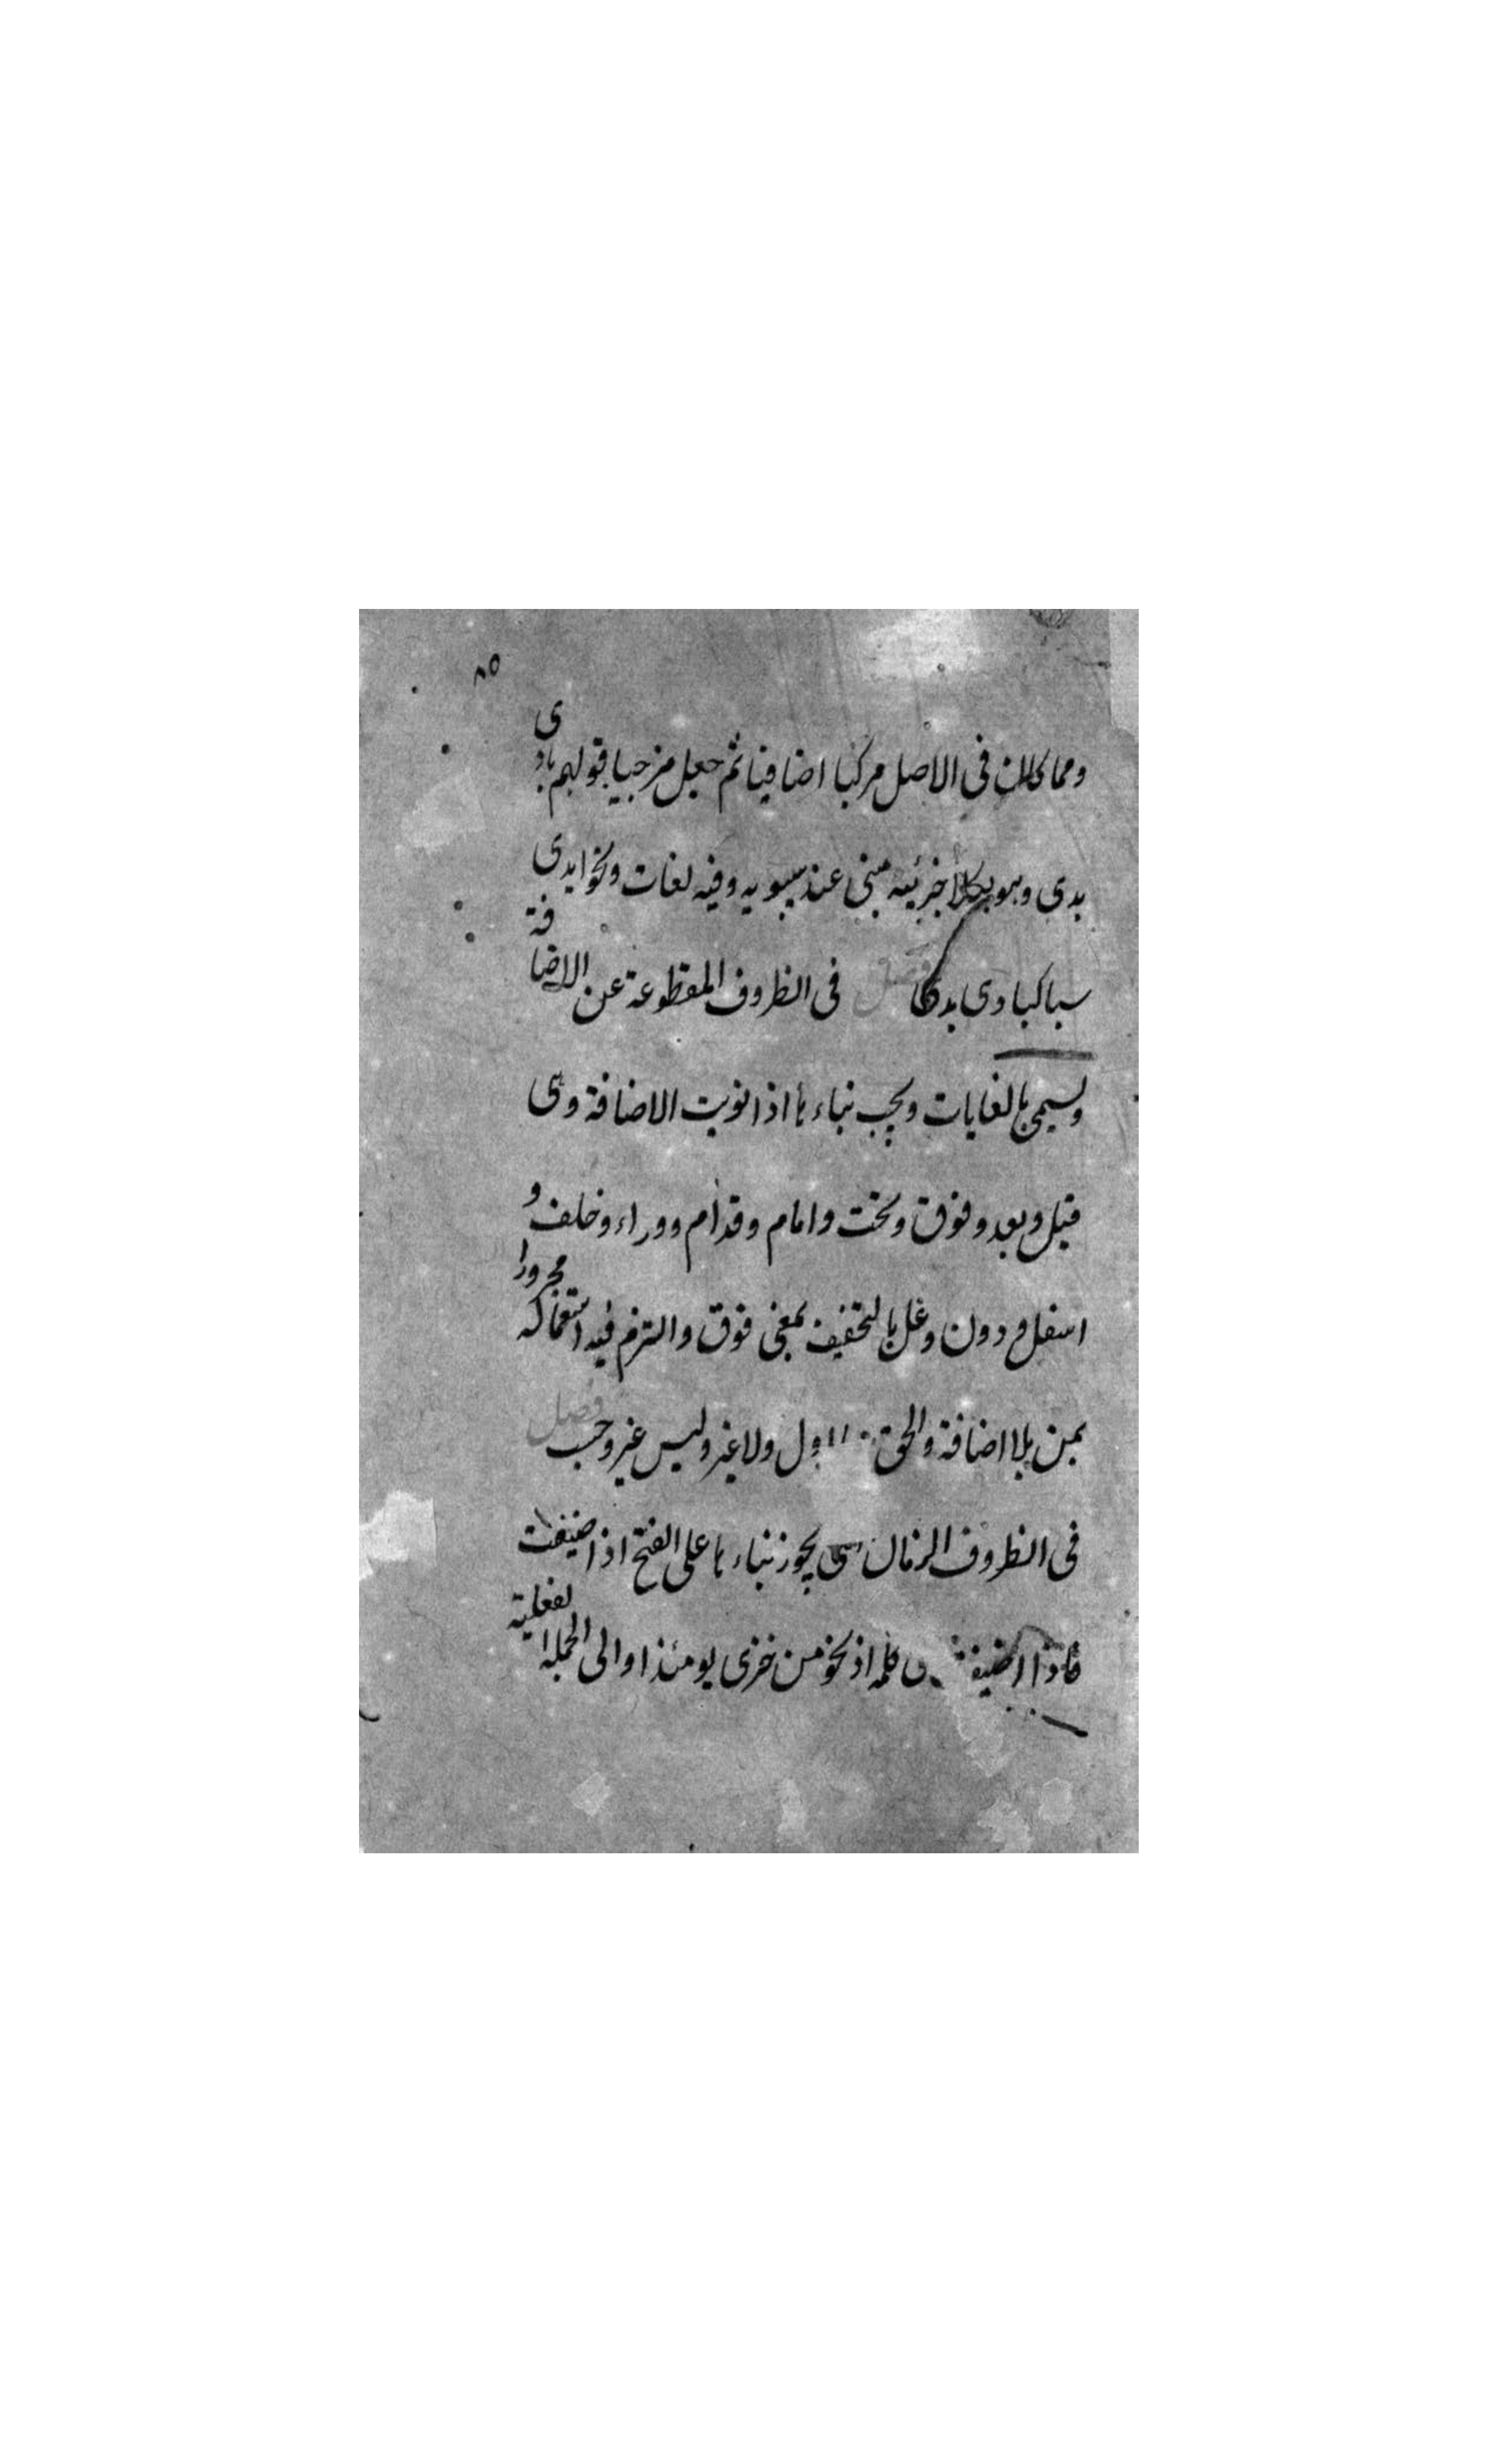 ٨٥
ومما كان في الاصل مركبا اضافيا ثم جعل مزجيا قولهم بادى
بدى وهو بكلا جزئيه مبنى عند سيبويه وفيه لغات ونحو ايدى
سبا كبادى بدى فصل في الظروف المقطوعة عن الاضافة
ويسمى بالغايات ويجب بناءها اذا نويت الاضافة وهى
قبل وبعد وفوق وتحت وامام وقدام ووراء وخلف و
اسفل ودون وعل بالتخفيف بمعنى فوق والتزم فيه استعماله مجرورا
بمن بلا اضافة والحق اول ولا غير وليس غير وحسب فصل
في الظروف الزمان يجوز بناءها على الفتح اذا اضيفت
فاذا اضيفت كلمة اذ نحو من خزى يومئذ او الى الجملة الفعلية